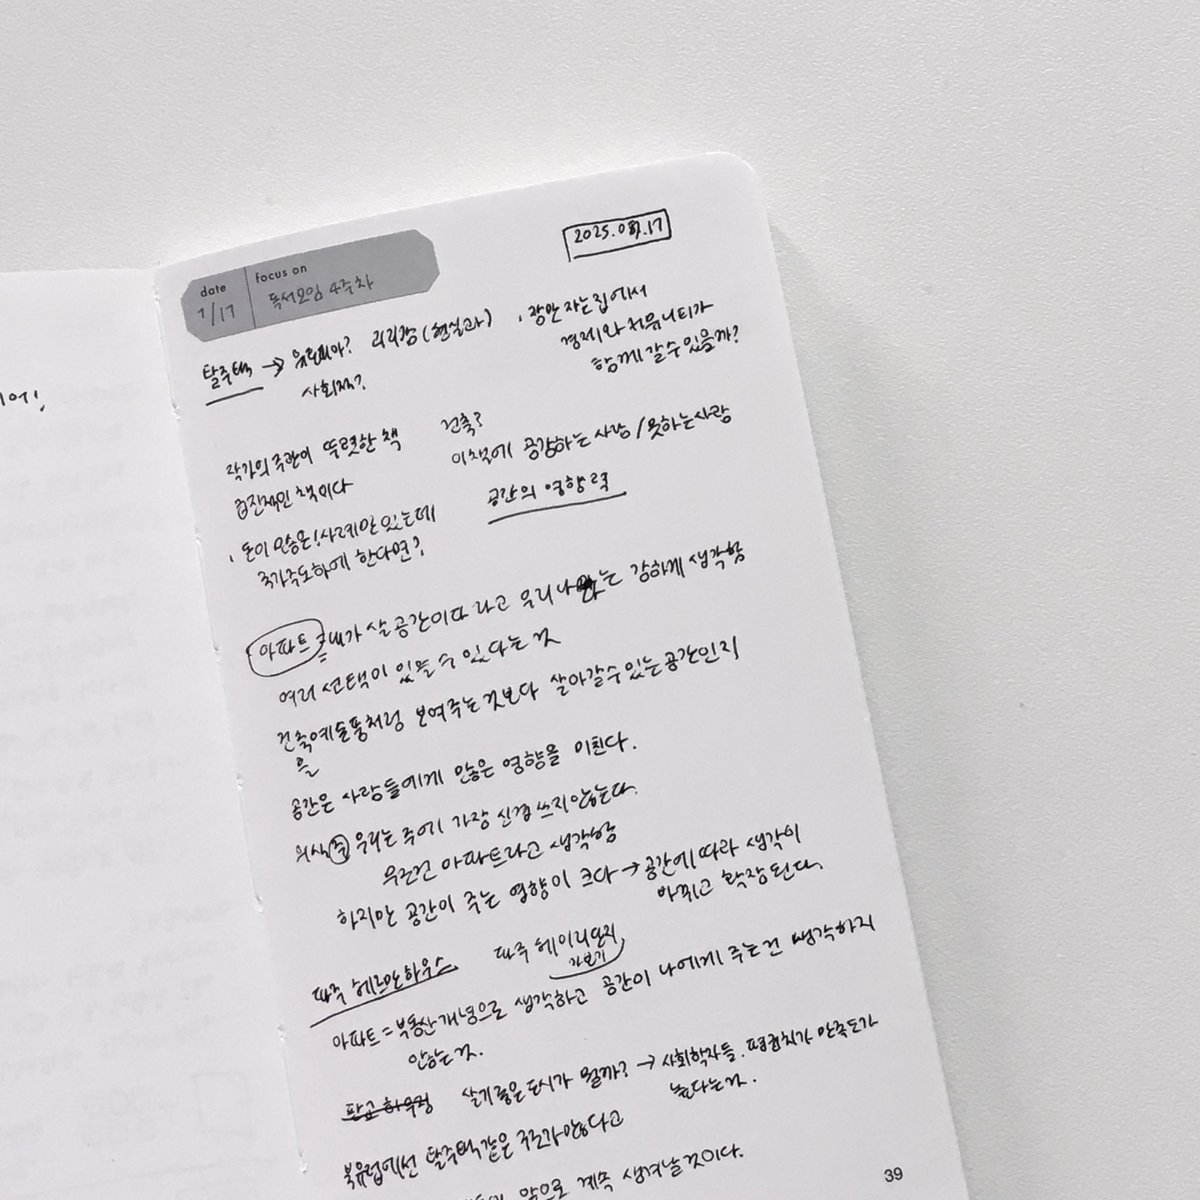 이어!
date
7/17
focus on
독서모임 4주차
2025.07.17
탈주택 → 유토피아? 괴리감(현실과)
사회적?
. 잠만 자는 집에서
경제와 커뮤니티가
함께 갈 수 있을까?
작가의 주관이 뚜렷한 책
급진적인 책이다
. 돈이 모순은! 사례만 있는데
국가주도하에 한다면?
건축?
이 책에 공감하는 사람/못하는 사람
공간의 영향력
아파트 = 내가 살 공간이다 라고 우리나라는 강하게 생각함
여러 선택이 있을 수 있다는 것
건축예술품처럼 보여주는 것보다 살아갈 수 있는 공간인지
을
공간은 사람들에게 많은 영향을 미친다.
의식주 우리는 주에 가장 신경쓰지 않는다.
무조건 아파트라고 생각함
하지만 공간이 주는 영향이 크다 → 공간에 따라 생각이
바뀌고 확장된다.
파주 헤르만하우스 파주 헤이리단지
가보기
아파트 = 부동산 개념으로 생각하고 공간이 나에게 주는건 생각하지
않는 것.
판교 하우징 살기 좋은 도시가 뭘까? → 사회학자들. 평균치가 만족도가
높다는 것.
북유럽에선 탈주택 같은 구조가 많다고
앞으로 계속 생겨날 것이다.
39